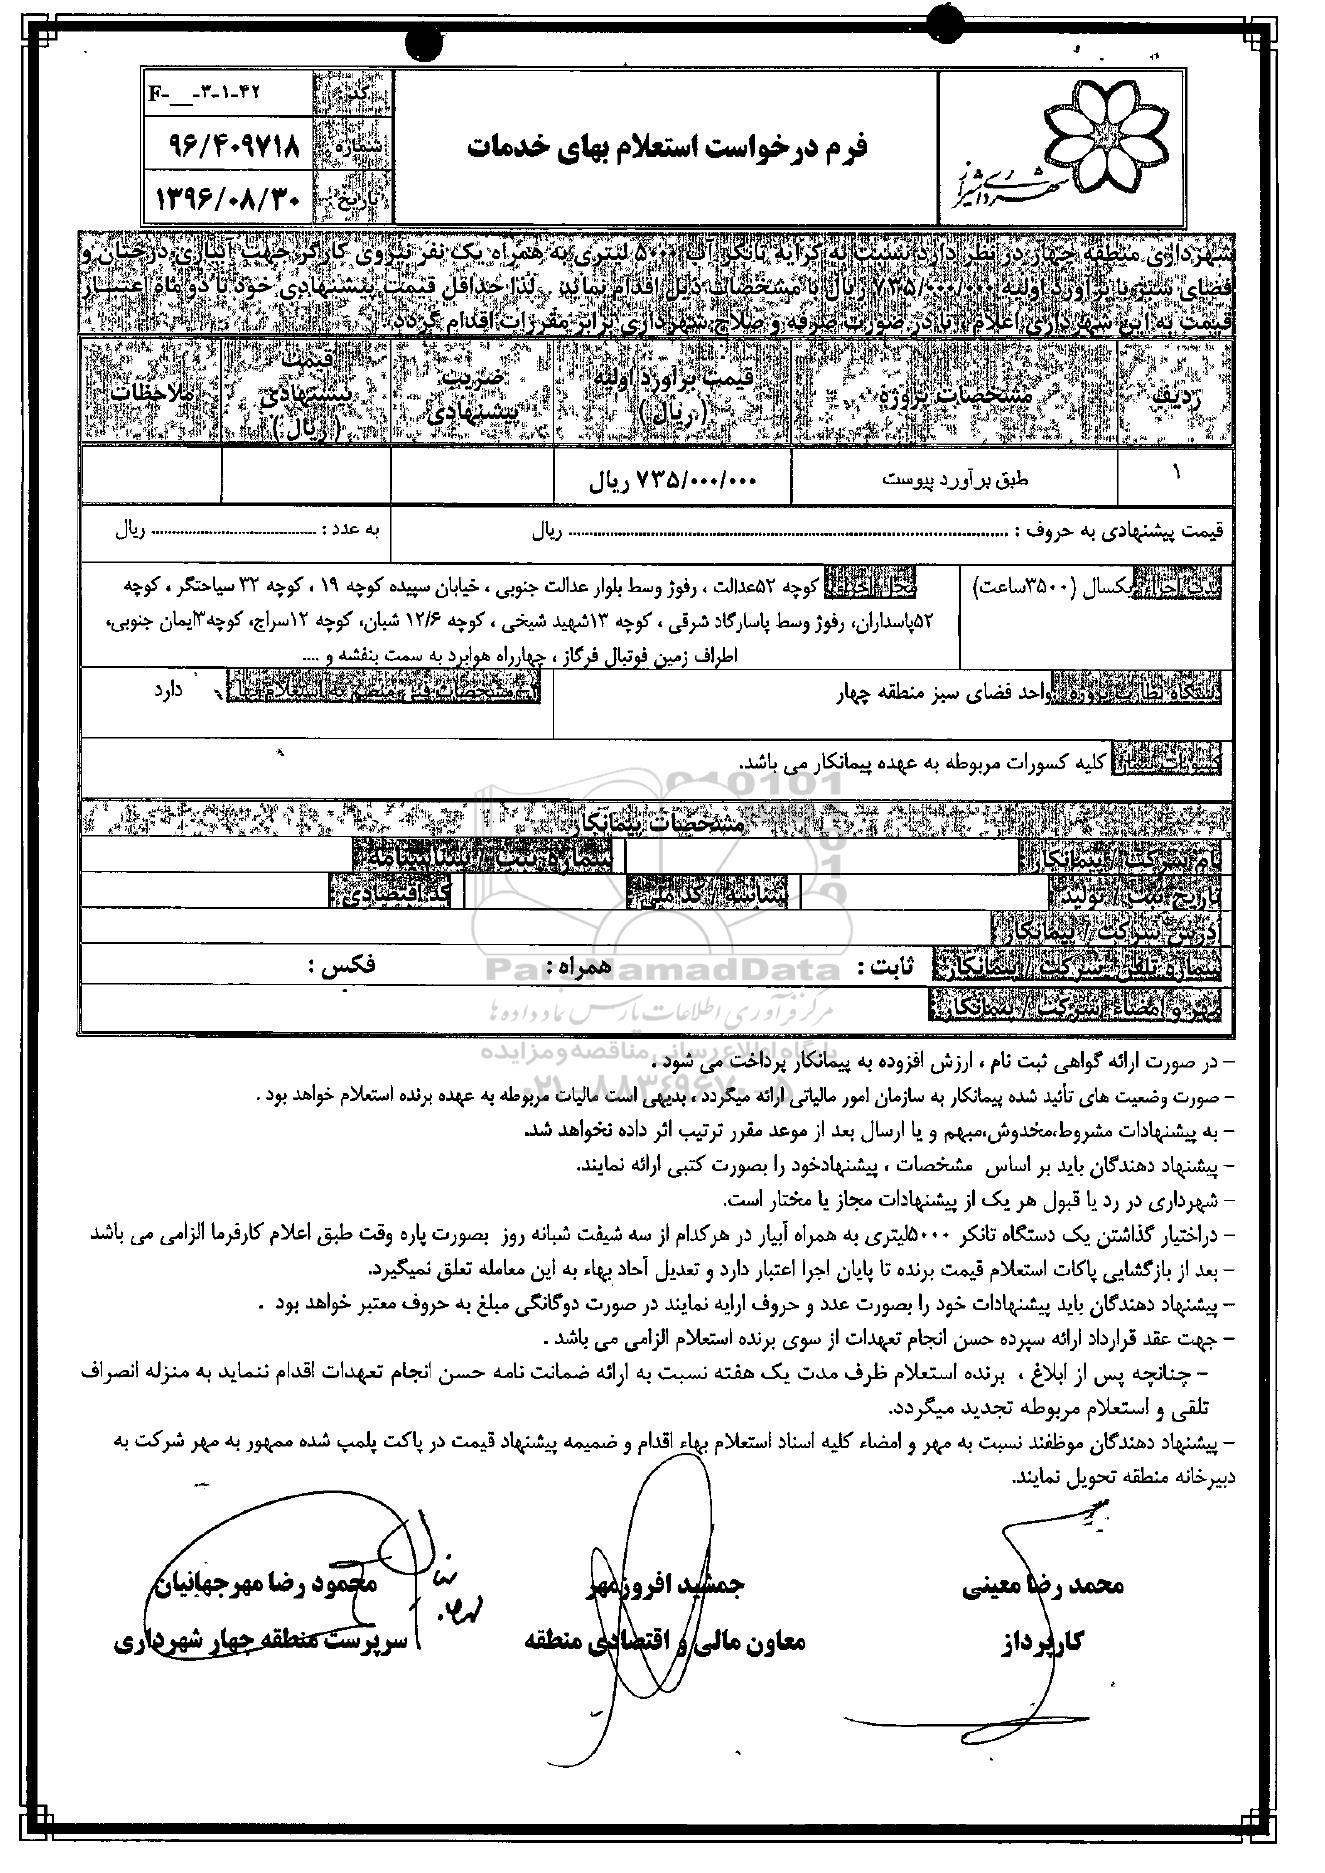 شهرداری شیراز
فرم درخواست استعلام بهای خدمات
کد: F-__-۳-۱-۴۲
شماره: ۹۶/۴۰۹۷۱۸
تاریخ: ۱۳۹۶/۰۸/۳۰
شهرداری منطقه چهار در نظر دارد نسبت به کرایه تانکر آب ۵۰۰۰ لیتری به همراه یک نفر نیروی کارگر جهت آبیاری درختان و
فضای سبز با برآورد اولیه ۷۳۵/۰۰۰/۰۰۰ ریال با مشخصات ذیل اقدام نماید . لذا حداقل قیمت پیشنهادی خود با دو ماه اعتبار
قیمت به این شهرداری اعلام ، تا در صورت صرفه و صلاح شهرداری برابر مقررات اقدام گردد .
ردیف مشخصات پروژه قیمت برآورد اولیه (ریال) ضریب پیشنهادی قیمت پیشنهادی (ریال) ملاحظات
۱ طبق برآورد پیوست ۷۳۵/۰۰۰/۰۰۰ ریال
قیمت پیشنهادی به حروف : ........................ ریال به عدد : ........................ ریال
مدت اجراء: یکسال (۳۵۰۰ساعت)
محل اجراء: کوچه ۵۲عدالت ، رفوژ وسط بلوار عدالت جنوبی ، خیابان سپیده کوچه ۱۹ ، کوچه ۳۲ سیاحتگر ، کوچه
۵۲پاسداران، رفوژ وسط پاسارگاد شرقی ، کوچه ۱۳شهید شیخی ، کوچه ۱۲/۶ شبان، کوچه ۱۲سراج، کوچه۳ایمان جنوبی،
اطراف زمین فوتبال فرگاز ، چهارراه هوابرد به سمت بنفشه و ....
دستگاه نظارت پروژه: واحد فضای سبز منطقه چهار
مشخصات فنی منضم به استعلام بها: دارد
کلیه کسورات مربوطه به عهده پیمانکار می باشد.
مشخصات پیمانکار
نام شرکت / پیمانکار: شماره ثبت / شناسنامه:
تاریخ ثبت / تولید: شناسه / کد ملی: کد اقتصادی:
آدرس شرکت / پیمانکار:
شماره تلفن شرکت / پیمانکار: ثابت : همراه : فکس :
مهر و امضاء شرکت / پیمانکار:
010101
ParsNamadData
مرکز فرآوری اطلاعات پارس نماد داده ها
پایگاه اطلاع رسانی مناقصه و مزایده
۰۲۱-۸۸۳۴۹۶۷۰-۵
- در صورت ارائه گواهی ثبت نام ، ارزش افزوده به پیمانکار پرداخت می شود .
- صورت وضعیت های تأئید شده پیمانکار به سازمان امور مالیاتی ارائه میگردد ، بدیهی است مالیات مربوطه به عهده برنده استعلام خواهد بود .
- به پیشنهادات مشروط،مخدوش،مبهم و یا ارسال بعد از موعد مقرر ترتیب اثر داده نخواهد شد.
- پیشنهاد دهندگان باید بر اساس مشخصات ، پیشنهادخود را بصورت کتبی ارائه نمایند.
- شهرداری در رد یا قبول هر یک از پیشنهادات مجاز یا مختار است.
- دراختیار گذاشتن یک دستگاه تانکر ۵۰۰۰لیتری به همراه آبیار در هرکدام از سه شیفت شبانه روز بصورت پاره وقت طبق اعلام کارفرما الزامی می باشد
- بعد از بازگشایی پاکات استعلام قیمت برنده تا پایان اجرا اعتبار دارد و تعدیل آحاد بهاء به این معامله تعلق نمیگیرد.
- پیشنهاد دهندگان باید پیشنهادات خود را بصورت عدد و حروف ارایه نمایند در صورت دوگانگی مبلغ به حروف معتبر خواهد بود .
- جهت عقد قرارداد ارائه سپرده حسن انجام تعهدات از سوی برنده استعلام الزامی می باشد .
- چنانچه پس از ابلاغ ، برنده استعلام ظرف مدت یک هفته نسبت به ارائه ضمانت نامه حسن انجام تعهدات اقدام ننماید به منزله انصراف
تلقی و استعلام مربوطه تجدید میگردد.
- پیشنهاد دهندگان موظفند نسبت به مهر و امضاء کلیه اسناد استعلام بهاء اقدام و ضمیمه پیشنهاد قیمت در پاکت پلمپ شده ممهور به مهر شرکت به
دبیرخانه منطقه تحویل نمایند.
محمد رضا معینی جمشید افروزمهر محمود رضا مهرجهانیان
کارپرداز معاون مالی و اقتصادی منطقه سرپرست منطقه چهار شهرداری